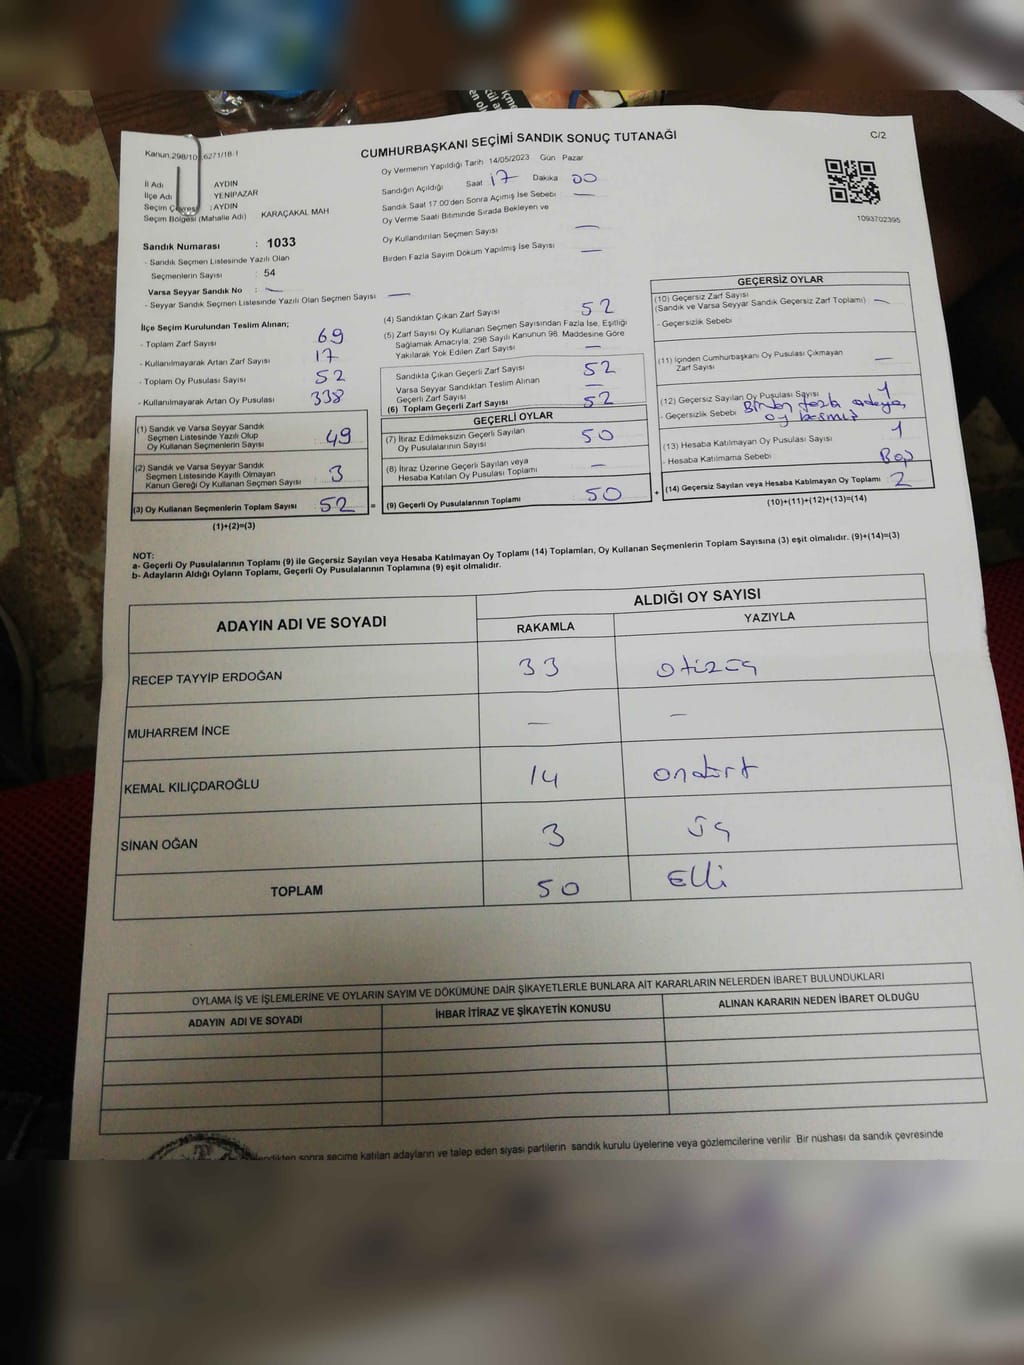 CUMHURBAŞKANI SEÇİMİ SANDIK SONUÇ TUTANAĞI
C/2
Kanun:298/10 6271/18-I
Oy Vermenin Yapıldığı Tarih 14/05/2023 Gün Pazar
Sandığın Açıldığı Saat 17 Dakika 00
Sandık Saat 17.00'den Sonra Açılmış İse Sebebi —
Oy Verme Saati Bitiminde Sırada Bekleyen ve
Oy Kullandırılan Seçmen Sayısı —
Birden Fazla Sayım Döküm Yapılmış İse Sayısı —
1093702395
İl Adı AYDIN
İlçe Adı YENİPAZAR
Seçim Çevresi : AYDIN
Seçim Bölgesi (Mahalle Adı) KARAÇAKAL MAH
Sandık Numarası : 1033
- Sandık Seçmen Listesinde Yazılı Olan
Seçmenlerin Sayısı : 54
Varsa Seyyar Sandık No : —
- Seyyar Sandık Seçmen Listesinde Yazılı Olan Seçmen Sayısı —
İlçe Seçim Kurulundan Teslim Alınan;
- Toplam Zarf Sayısı : 69
- Kullanılmayarak Artan Zarf Sayısı : 17
- Toplam Oy Pusulası Sayısı : 52
- Kullanılmayarak Artan Oy Pusulası : 338
(1) Sandık ve Varsa Seyyar Sandık
Seçmen Listesinde Yazılı Olup
Oy Kullanan Seçmenlerin Sayısı : 49
(2) Sandık ve Varsa Seyyar Sandık
Seçmen Listesinde Kayıtlı Olmayan
Kanun Gereği Oy Kullanan Seçmen Sayısı : 3
(3) Oy Kullanan Seçmenlerin Toplam Sayısı : 52 =
(1)+(2)=(3)
(4) Sandıktan Çıkan Zarf Sayısı : 52
(5) Zarf Sayısı Oy Kullanan Seçmen Sayısından Fazla İse, Eşitliği
Sağlamak Amacıyla; 298 Sayılı Kanunun 98. Maddesine Göre
Yakılarak Yok Edilen Zarf Sayısı : —
Sandıkta Çıkan Geçerli Zarf Sayısı : 52
Varsa Seyyar Sandıktan Teslim Alınan
Geçerli Zarf Sayısı : —
(6) Toplam Geçerli Zarf Sayısı : 52
GEÇERLİ OYLAR
(7) İtiraz Edilmeksizin Geçerli Sayılan
Oy Pusulalarının Sayısı : 50
(8) İtiraz Üzerine Geçerli Sayılan veya
Hesaba Katılan Oy Pusulası Toplamı : —
(9) Geçerli Oy Pusulalarının Toplamı : 50 +
GEÇERSİZ OYLAR
(10) Geçersiz Zarf Sayısı
(Sandık ve Varsa Seyyar Sandık Geçersiz Zarf Toplamı) : —
- Geçersizlik Sebebi :
(11) İçinden Cumhurbaşkanı Oy Pusulası Çıkmayan
Zarf Sayısı : —
(12) Geçersiz Sayılan Oy Pusulası Sayısı : 1
- Geçersizlik Sebebi : Birden fazla adaya
oy basmış
(13) Hesaba Katılmayan Oy Pusulası Sayısı : 1
- Hesaba Katılmama Sebebi : Boş
(14) Geçersiz Sayılan veya Hesaba Katılmayan Oy Toplamı : 2
(10)+(11)+(12)+(13)=(14)
NOT:
a- Geçerli Oy Pusulalarının Toplamı (9) ile Geçersiz Sayılan veya Hesaba Katılmayan Oy Toplamı (14) Toplamları, Oy Kullanan Seçmenlerin Toplam Sayısına (3) eşit olmalıdır. (9)+(14)=(3)
b- Adayların Aldığı Oyların Toplamı, Geçerli Oy Pusulalarının Toplamına (9) eşit olmalıdır.
ADAYIN ADI VE SOYADI
ALDIĞI OY SAYISI
RAKAMLA YAZIYLA
RECEP TAYYİP ERDOĞAN 33 otüzüç
MUHARREM İNCE — —
KEMAL KILIÇDAROĞLU 14 ondört
SİNAN OĞAN 3 üç
TOPLAM 50 Elli
OYLAMA İŞ VE İŞLEMLERİNE VE OYLARIN SAYIM VE DÖKÜMÜNE DAİR ŞİKAYETLERLE BUNLARA AİT KARARLARIN NELERDEN İBARET BULUNDUKLARI
ADAYIN ADI VE SOYADI İHBAR İTİRAZ VE ŞİKAYETİN KONUSU ALINAN KARARIN NEDEN İBARET OLDUĞU
sonra seçime katılan adayların ve talep eden siyasi partilerin sandık kurulu üyelerine veya gözlemcilerine verilir. Bir nüshası da sandık çevresinde